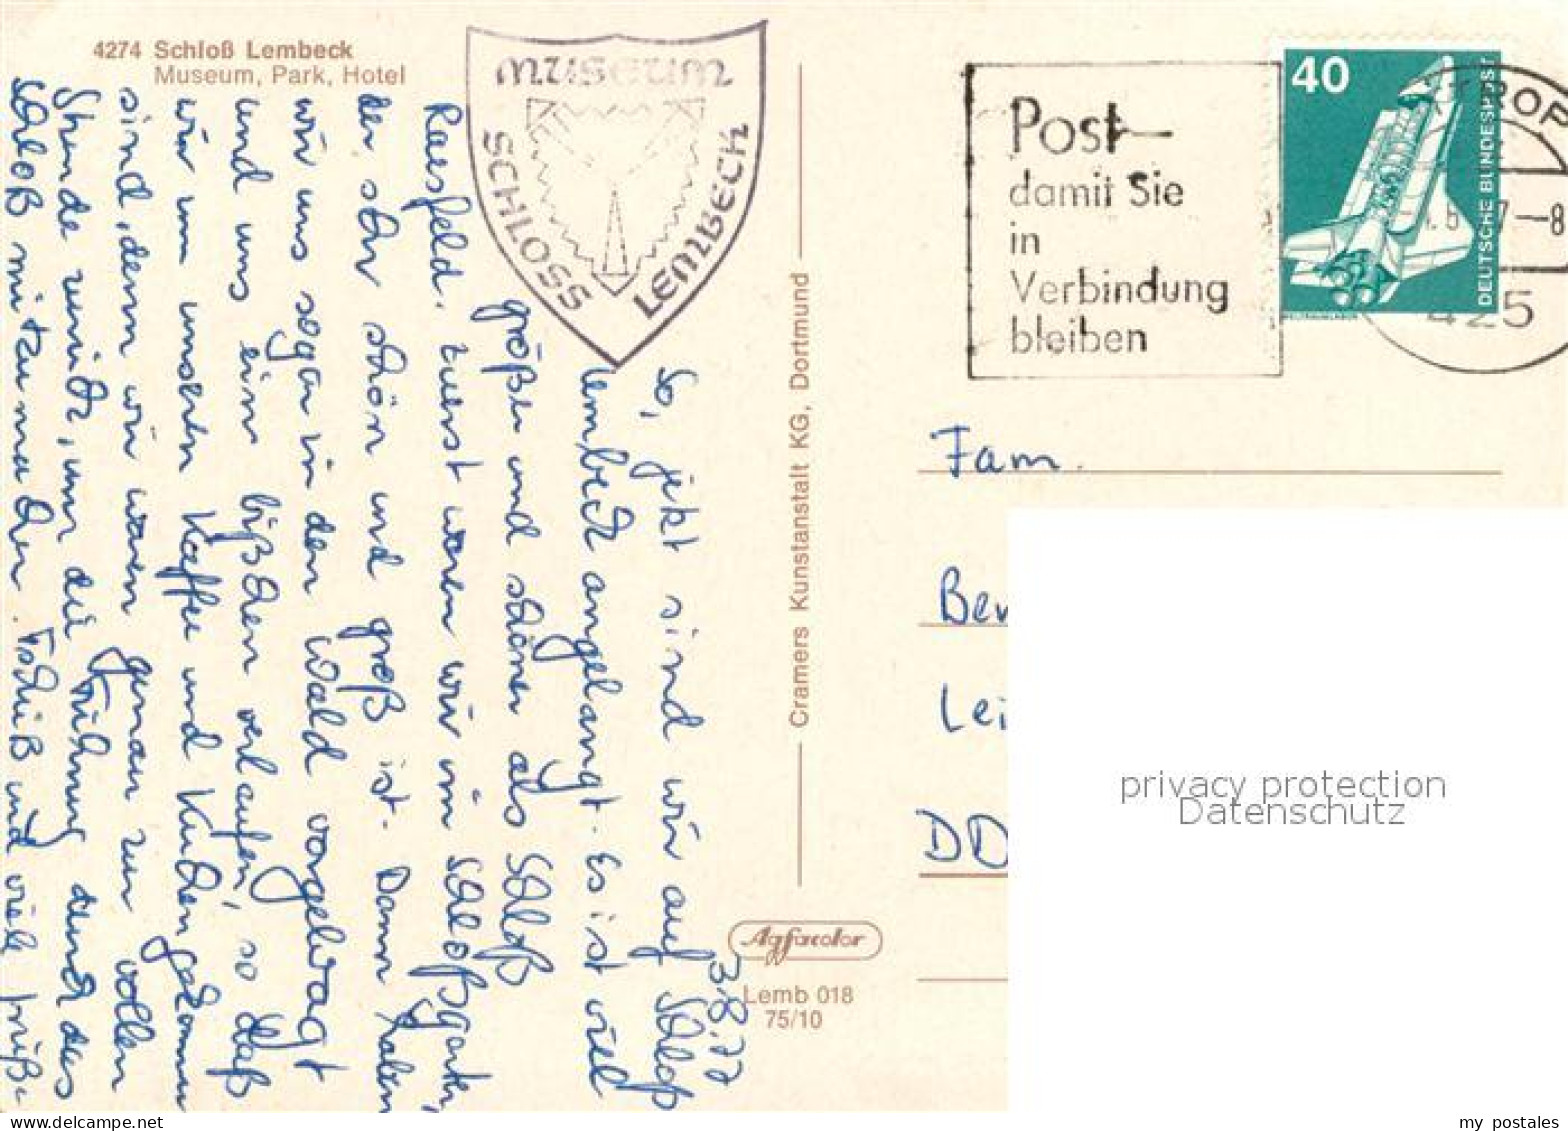 4274 Schloß Lembeck
Museum, Park, Hotel
MUSEUM
SCHLOSS
LEMBECK
Post—
damit Sie
in
Verbindung
bleiben
40
DEUTSCHE BUNDESPOST
TROP
7—8
425
3.8.77
So, jetzt sind wir auf Schloß
Lembeck angelangt. Es ist viel
größer und schöner als Schloß
Raesfeld. Zuerst waren wir im Schloßgarten,
der sehr schön und groß ist. Dann haben
wir uns sogar in den Wald vorgewagt
und uns ein bißchen verlaufen, so daß
wir um unseren Kaffee und Kuchen gekommen
sind, denn wir waren genau zur vollen
Stunde zurück, um die Führung durch das
Schloß mitzumachen. Tschüß und viele Grüße
Cramers Kunstanstalt KG, Dortmund
Agfacolor
Lemb 018
75/10
Fam.
Ber
Lei
DD
privacy protection
Datenschutz
www.delcampe.net
my_postales